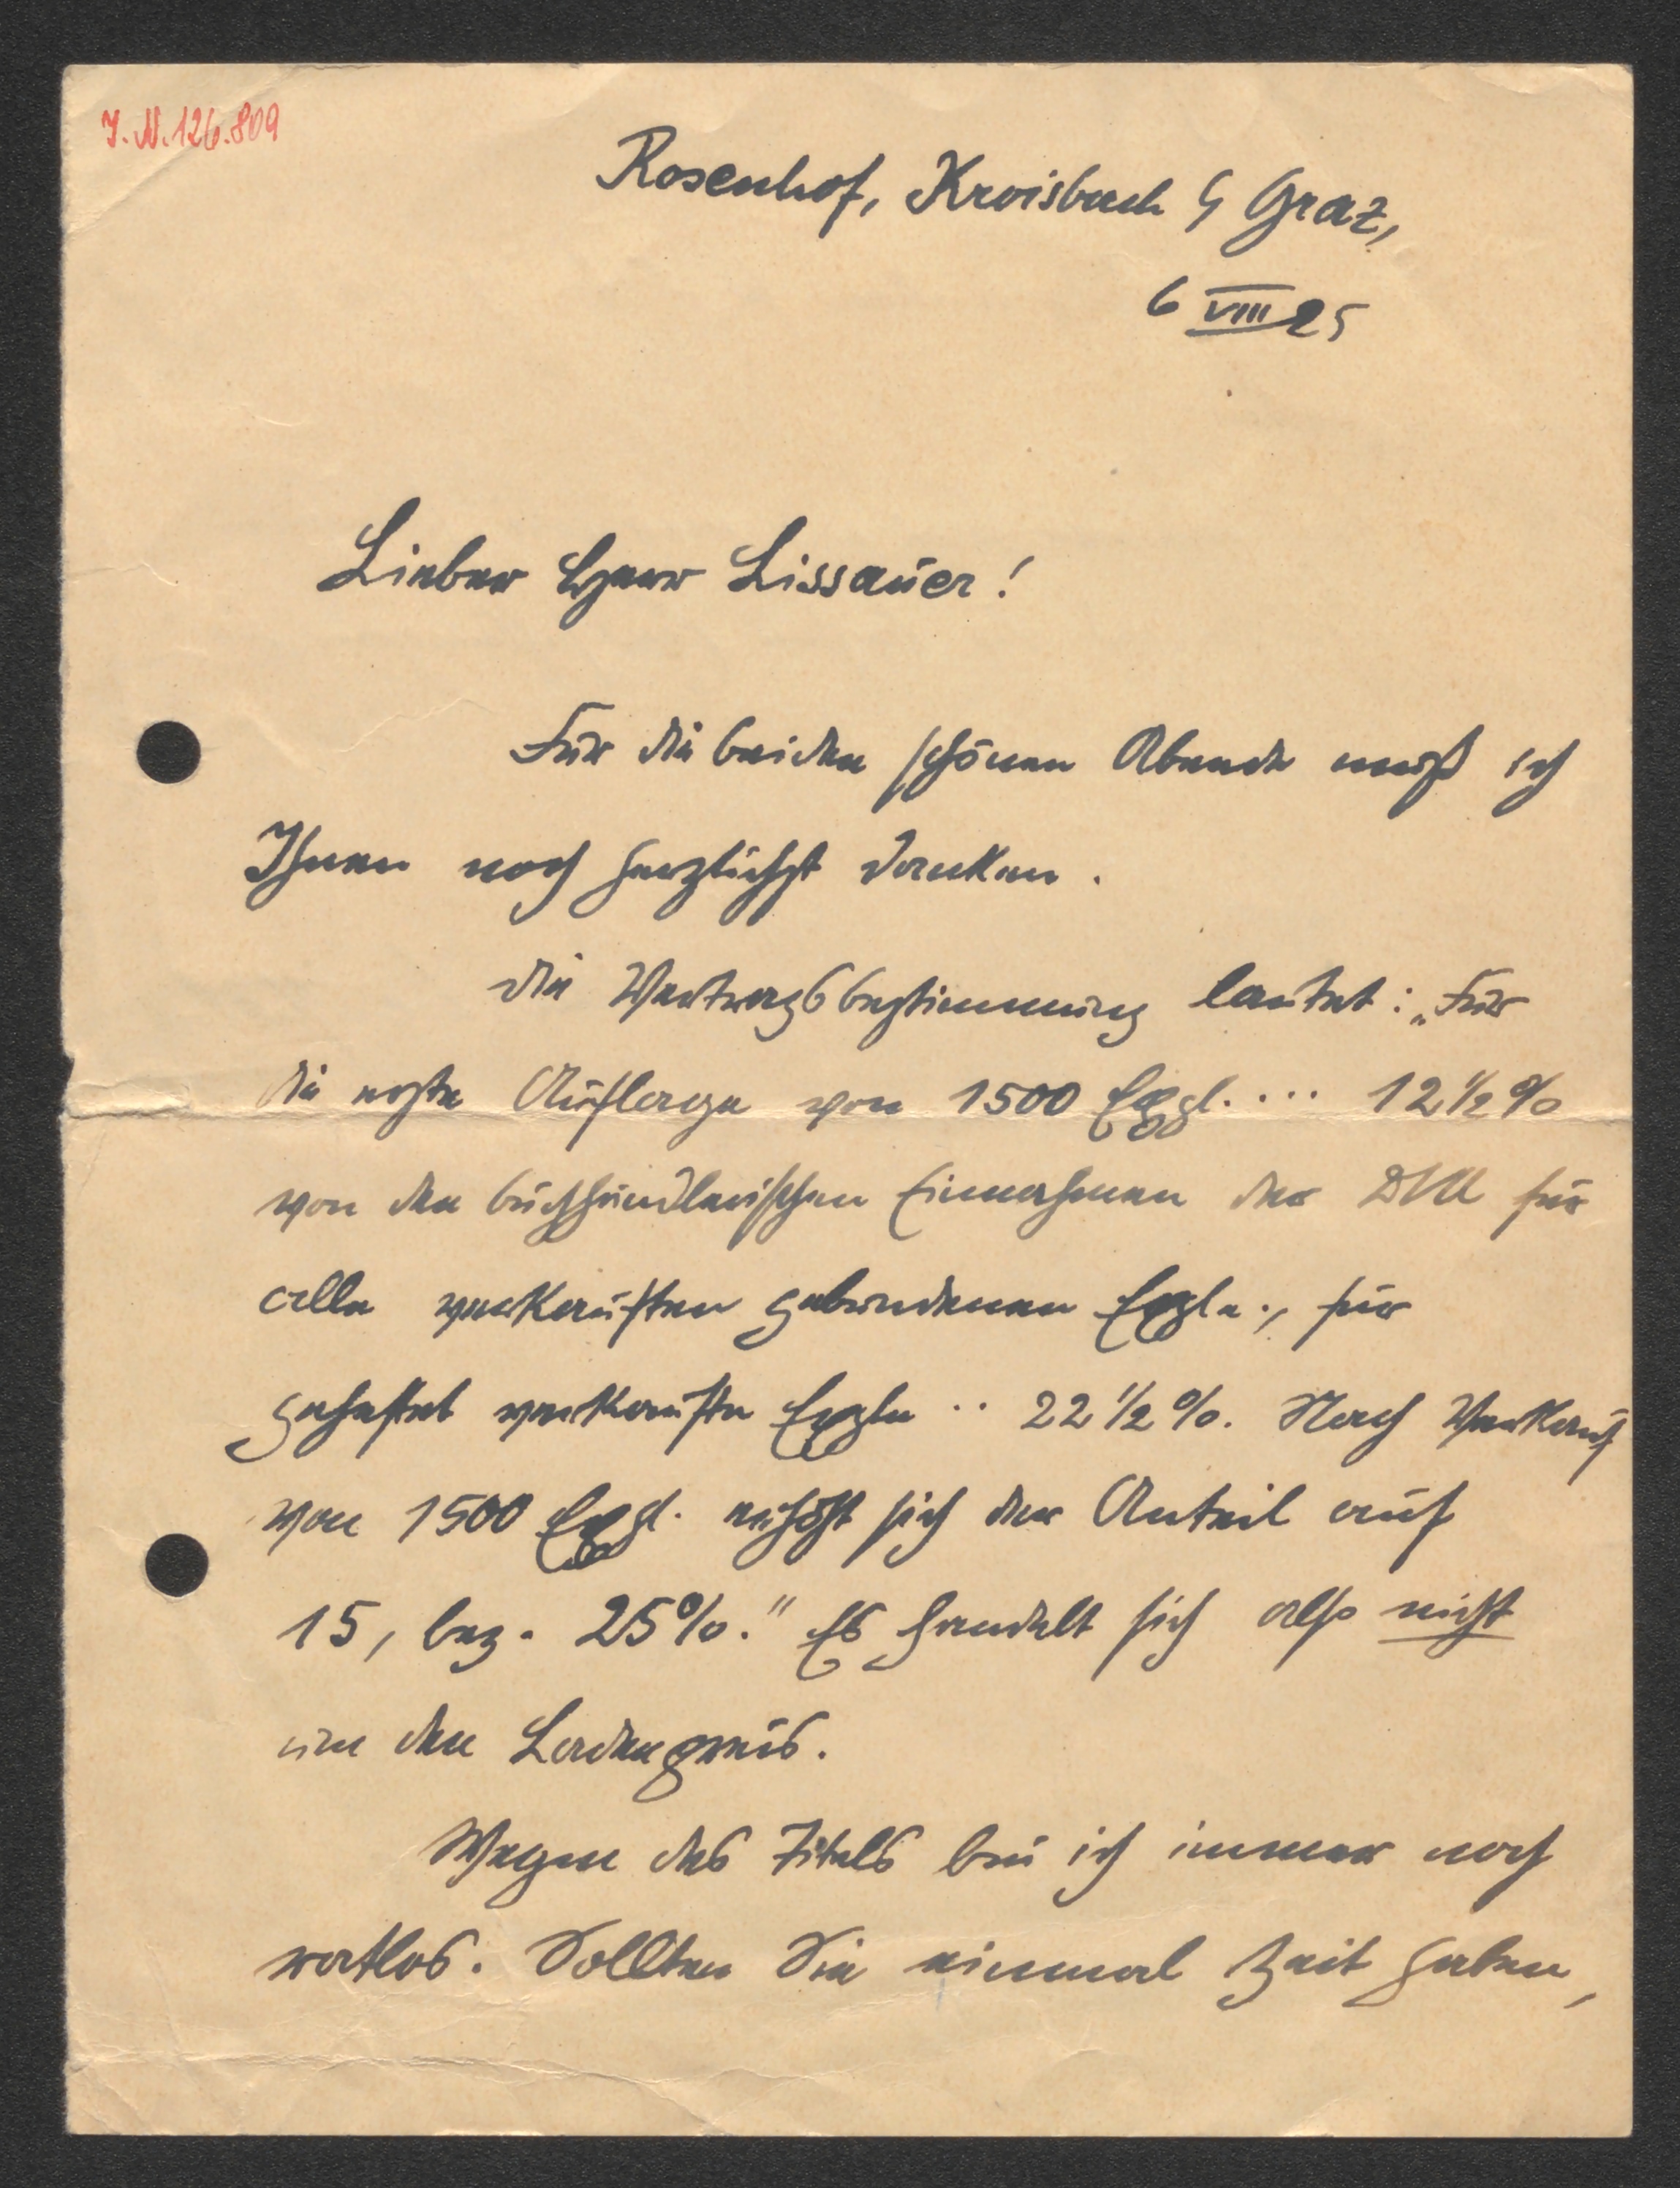 I.N.126.809
Rosenhof, Kroisbach b/ Graz,
6 VIII 25
Lieber Herr Lissauer!
Für die beiden schönen Abende muß ich
Ihnen noch herzlichst danken.
Die Vertragsbestimmung lautet: „Für
die erste Auflage von 1500 Expl. ... 12 1/2 %
von den buchhändlerischen Einnahmen der DVA für
alle verkauften gebundenen Exple., für
geheftet verkaufte Exple .. 22 1/2 %. Nach Verkauf
von 1500 Expl. erhöht sich der Anteil auf
15, bez. 25%." Es handelt sich also nicht
um den Ladenpreis.
Wegen des Titels bin ich immer noch
ratlos. Sollten Sie einmal Zeit haben,